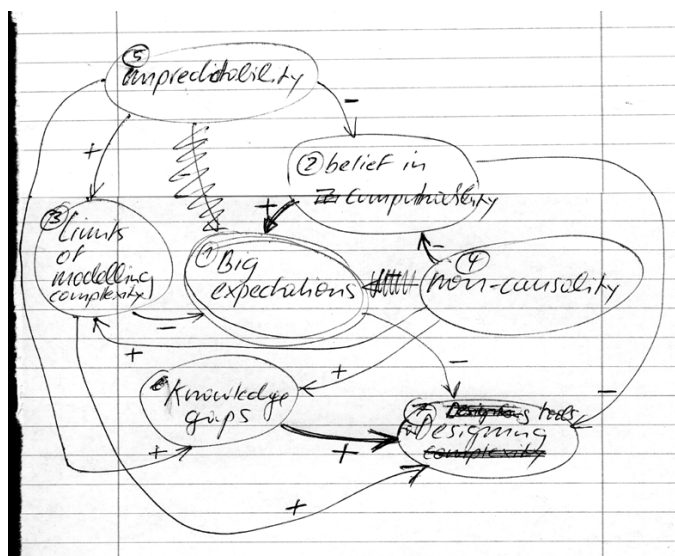 ⑤
unpredictability
−
+
② belief in
computability
+
③ Limits
of
modelling
complexity
① Big
expectations
−
−
④
non-causality
+
+
−
−
Knowledge
gaps
+
+
+
⑦ Designing tools
for Designing
complexity